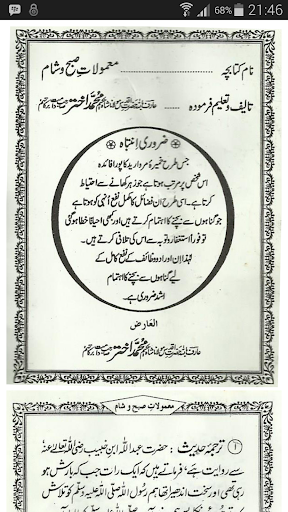 68% 21:46
نام کتابچہ ........................ معمولاتِ صبح و شام
تالیف و تعلیم فرمودہ .......... محمد اختر
ضروری انتباہ
جس طرح خمیرۂ مروارید کا پورا فائدہ
اس شخص پر مرتب ہوتا ہے جو زہر کھانے سے احتیاط
کرتا ہے۔ اسی طرح ان فضائل کا مکمل نفع اُنہی کو ہوتا ہے
جو گناہوں سے بچنے کا اہتمام کرتے ہیں اور کبھی احیاناً خطا ہوگئی
تو فوراً استغفار و توبہ سے اس کی تلافی کرتے ہیں۔
لہٰذا اِن اوراد و وظائف کے نفعِ کامل کے
لیے گناہوں سے بچنے کا اہتمام
اشد ضروری ہے۔
العارض
محمد اختر
معمولاتِ صبح و شام
۱ ترجمۂ حدیث: حضرت عبداللہ ابن خبیب رضی اللہ تعالیٰ عنہ
سے روایت ہے فرماتے ہیں کہ ایک رات جب کہ بارش ہو
رہی تھی اور سخت اندھیرا تھا ہم رسول اللہ صلی اللہ علیہ وسلم کو تلاش